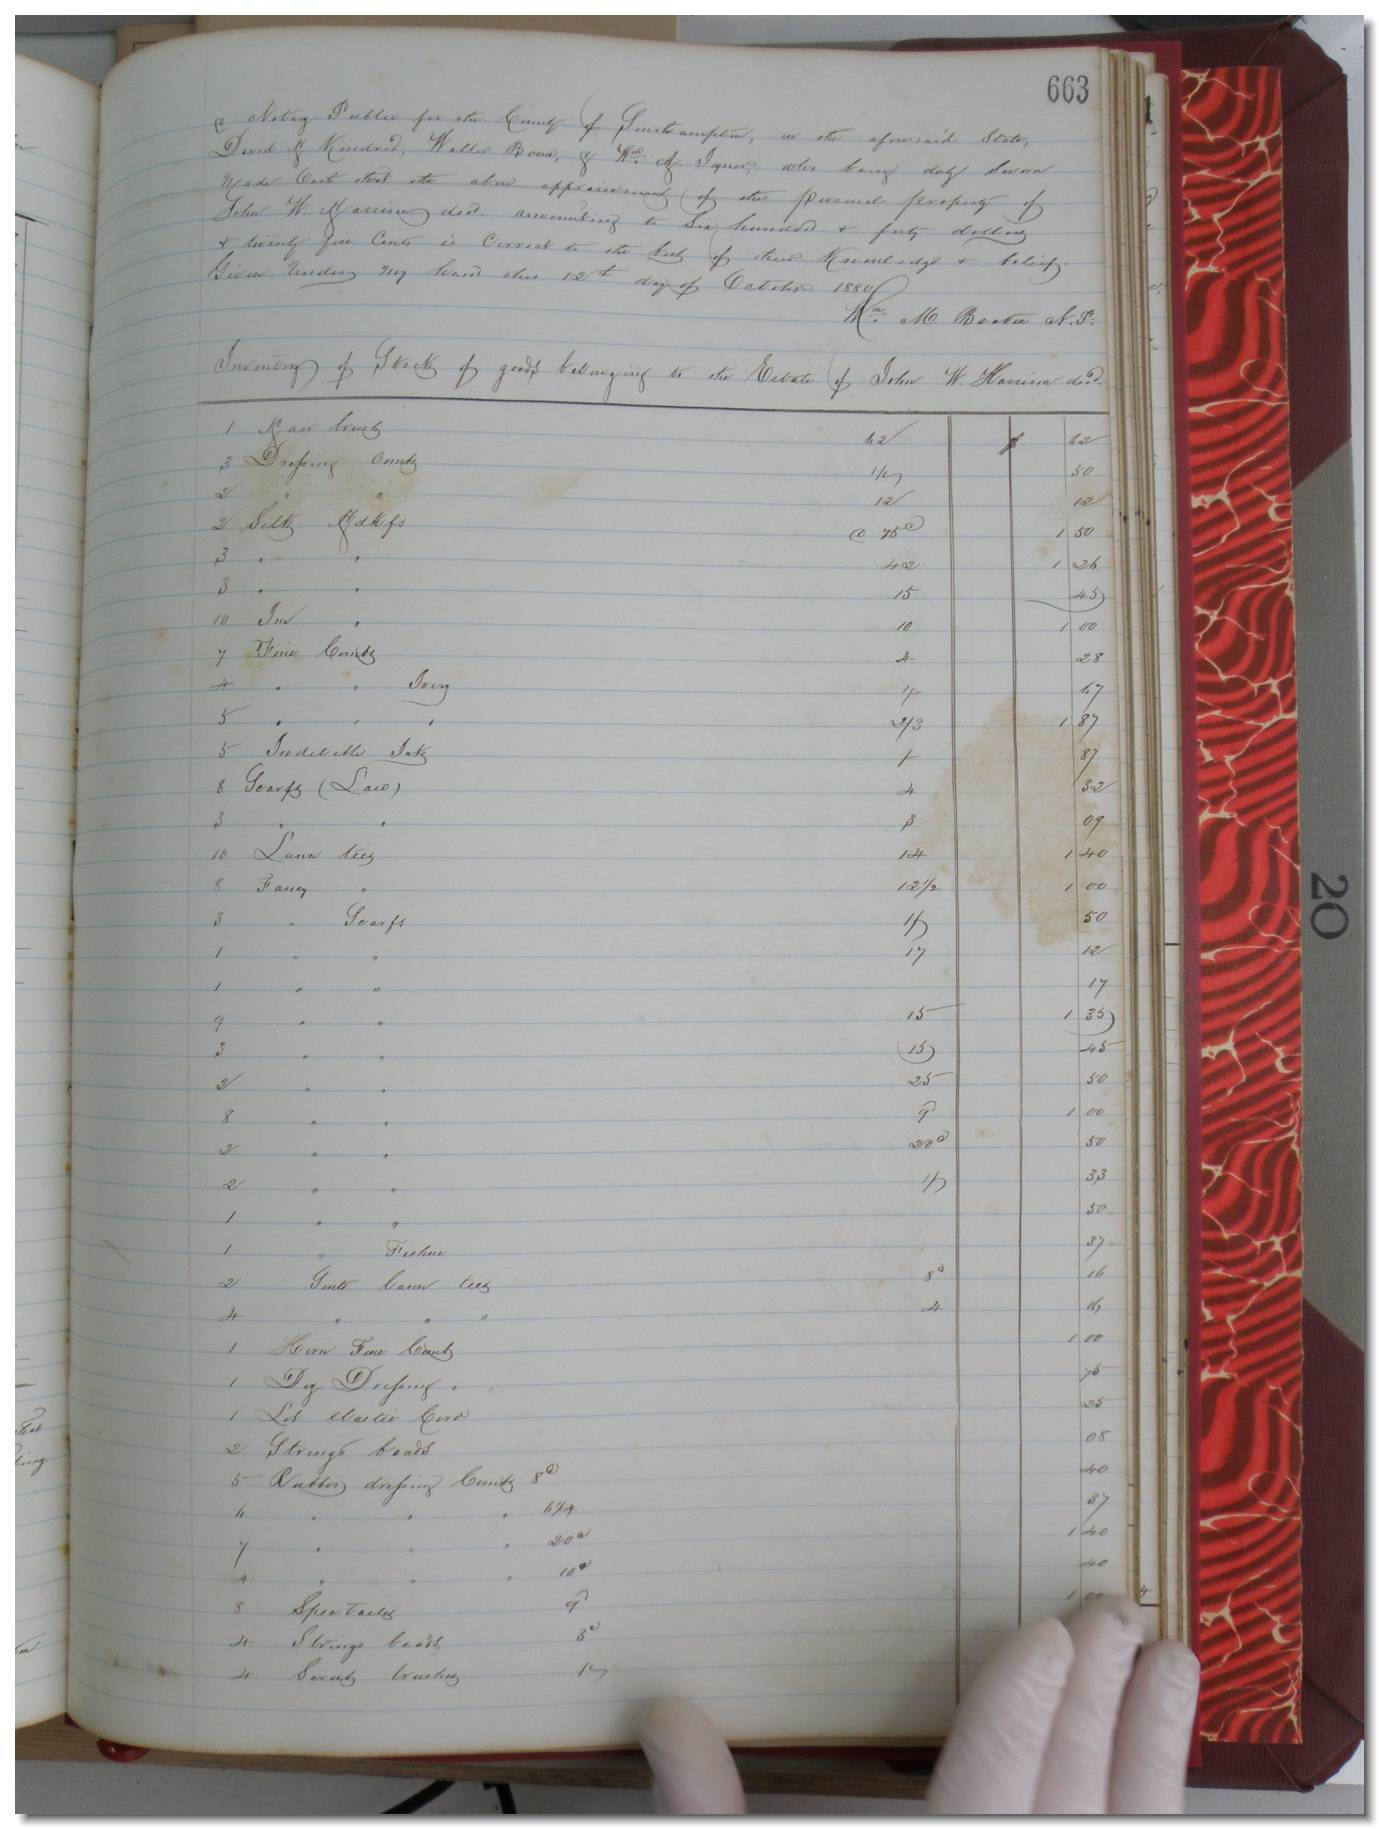 663
a Notary Public for the County of Southampton, in the aforesaid State,
David H Kindred, Walter Boone, & Wm H Joyner, who being duly Sworn
Made Oath that the above appraisement of the Personal Property of
John W. Harrison decd. amounting to Six hundred & forty dollars
& twenty five Cents is Correct to the best of their Knowledge & belief.
Given Under my hand this 12th day of October 1880
Wm. M Beaton N.P.
Inventory of Stock of goods belonging to the Estate of John W. Harrison decd.
1 Hair brush 62 $ 62
3 Dressing Combs 1/ 50
2 " " 12 12
2 Silk Hdkfs @ 75c 1 50
3 " " 42 1 26
3 " " 15 45
10 " 10 1 00
7 Fine Combs 4 28
4 " " Ivory 1/ 67
5 " " " 2/3 1 87
5 Indelible Ink 1/ 87
8 Scarfs (Lace) 4 32
3 " " 3 09
10 Lawn ties 14 1 40
8 Fancy " 12 1/2 1 00
3 " Scarfs 1/ 50
1 " " 17 12
1 " " 17
9 " " 15 1 35
3 " " 15 45
2 " " 25 50
8 " " 9 1 00
2 " " 50
2 " " 1/ 33
1 " " 50
1 " 37
2 Gents Lawn ties 8c 16
4 " " " 4 16
1 Horn Fine Comb 1 00
1 Doz Dressing " 75
1 Lot elastic Cord 25
2 Strings beads 08
5 Rubber dressing Combs 8c 40
6 " " " 6 1/4 37
7 " " " 20c 1 40
4 " " " 10c 40
8 Spectacles 9 1 00
4 Strings beads 3c
4 Scrub brushes 1/
4
20